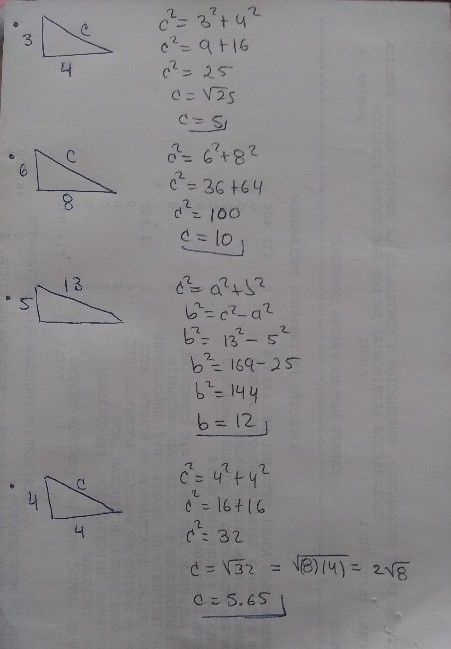 3 c 4
c² = 3² + 4²
c² = 9 + 16
c² = 25
c = √25
c = 5
6 c 8
c² = 6² + 8²
c² = 36 + 64
c² = 100
c = 10
5 13
c² = a² + b²
b² = c² - a²
b² = 13² - 5²
b² = 169 - 25
b² = 144
b = 12
4 c 4
c² = 4² + 4²
c² = 16 + 16
c² = 32
c = √32 = √(8)(4) = 2√8
c = 5.65